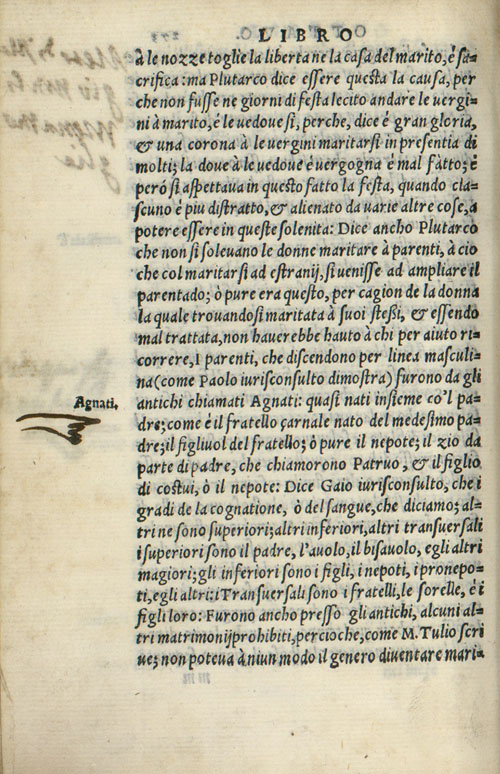 LIBRO
à le nozze toglie la libertane la casa del marito, é sa-
crifica: ma Plutarco dice essere questa la causa, per
che non fusse ne giorni di festa lecito andare le vergi-
ni à marito, é le uedoue si, perche, dice é gran gloria,
& una corona à le uergini maritarsi in presentia di
molti; la doue à le uedoue é uergogna é mal fatto; é
peró si aspettaua in questo fatto la festa, quando cia-
scuno é piu distratto, & alienato da uarie altre cose, a
potere essere in queste solenita: Dice ancho Plutarco
che non si soleuano le donne maritare à parenti, à cio
che col maritarsi ad estranij, si uenisse ad ampliare il
parentado; ò pure era questo, per cagion de la donna
la quale trouandosi maritata à suoi stessi, & essendo
mal trattata, non hauerebbe hauto à chi per aiuto ri-
correre, I parenti, che discendono per linea masculi-
na (come Paolo iurisconsulto dimostra) furono da gli
Agnati.
antichi chiamati Agnati: quasi nati insieme co'l pa-
dre; come é il fratello çarnale nato del medesimo pa-
dre; il figliuol del fratello; ò pure il nepote; il zio da
parte di padre, che chiamorono Patruo, & il figlio
di costui, ò il nepote: Dice Gaio iurisconsulto, che i
gradi de la cognatione, ò del sangue, che diciamo; al-
tri ne sono superiori; altri inferiori, altri transuersali
i superiori sono il padre, l'auolo, il bisauolo, e gli altri
magiori; gli inferiori sono i figli, i nepoti, i pronepo-
ti, e gli altri: i Transuersali sono i fratelli, le sorelle, é i
figli loro: Furono ancho presso gli antichi, alcuni al-
tri matrimonij prohibiti, percioche, come M. Tulio scri
ue; non poteua à niun modo il genero diuentare mari-